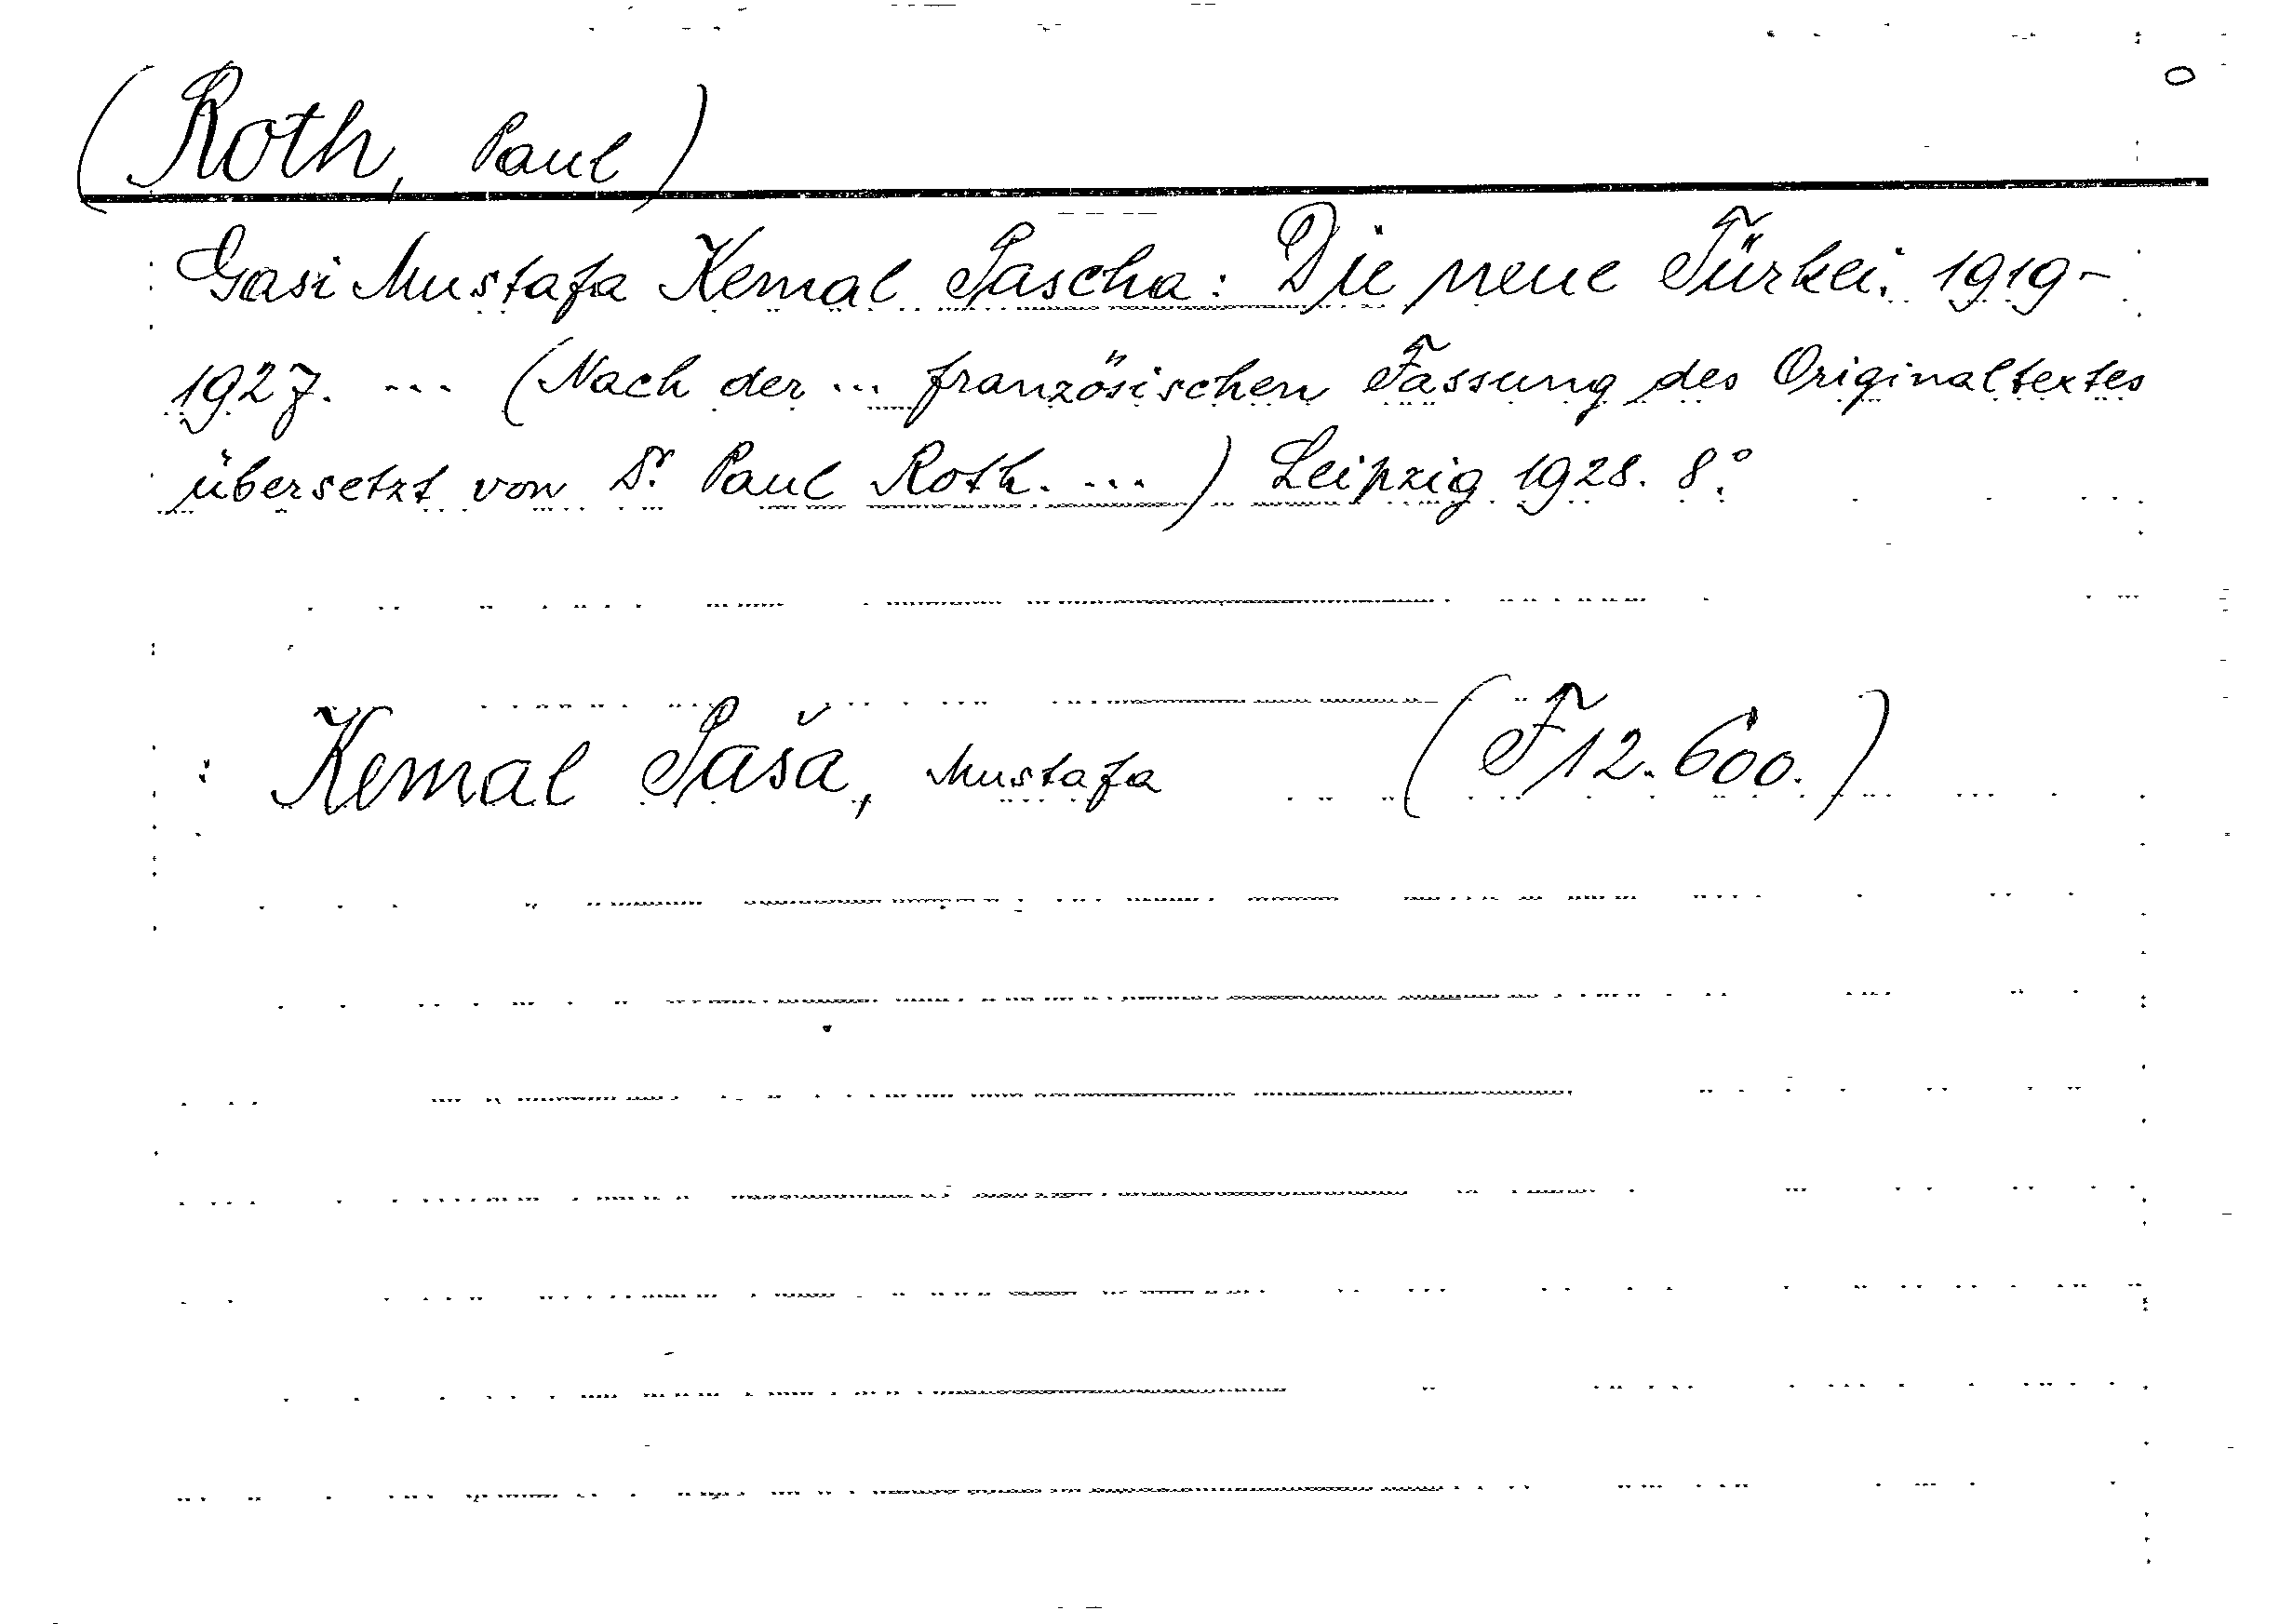 (Roth, Paul)
Gasi Mustafa Kemal Pascha: Die neue Türkei. 1919-
1927. ... (Nach der ... französischen Fassung des Originaltextes
übersetzt von Dr. Paul Roth. ...) Leipzig 1928. 8°.
: Kemal Paša, Mustafa (F 12.600.)